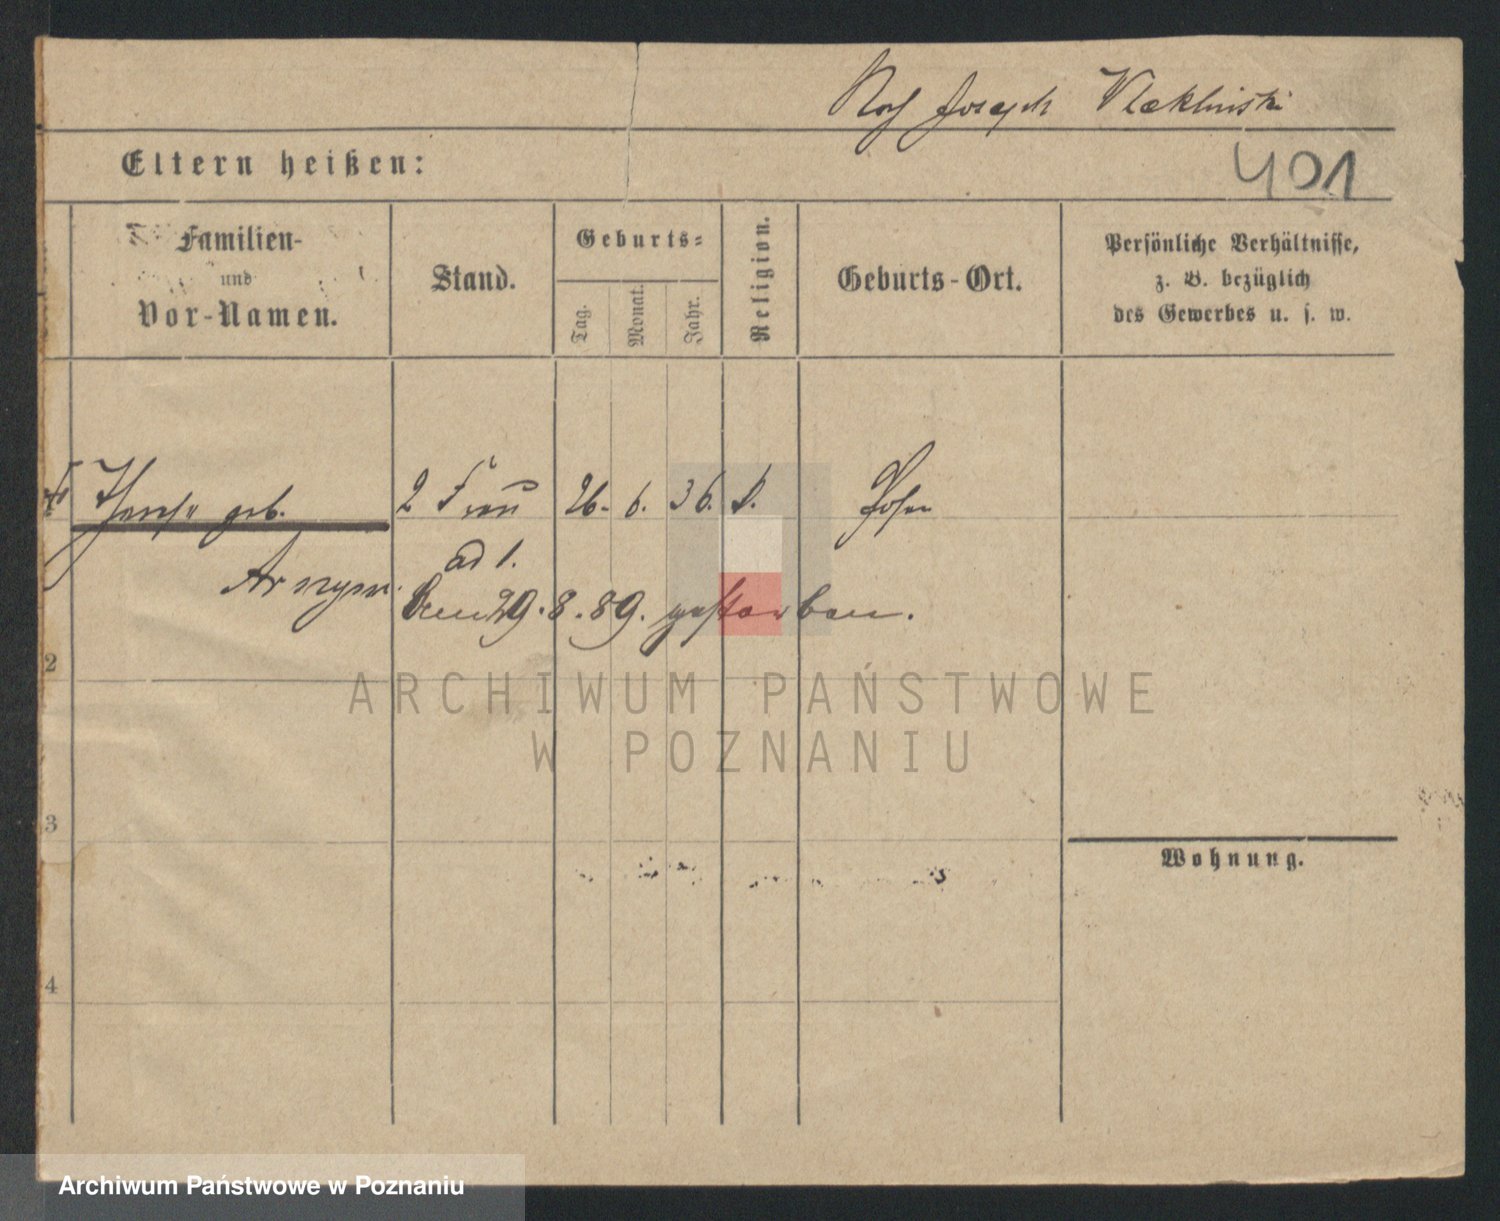 Joseph
Eltern heißen:
401
Familien-
und
Vor-Namen.
Stand.
Geburts-
Tag.
Monat.
Jahr.
Religion.
Geburts-Ort.
Persönliche Verhältnisse,
z. B. bezüglich
des Gewerbes u. s. w.
geb. 2 Frau 26. 6. 36. k. Posen
ad 1.
29. 8. 89. gestorben.
2
3
4
Wohnung.
ARCHIWUM PAŃSTWOWE
W POZNANIU
Archiwum Państwowe w Poznaniu